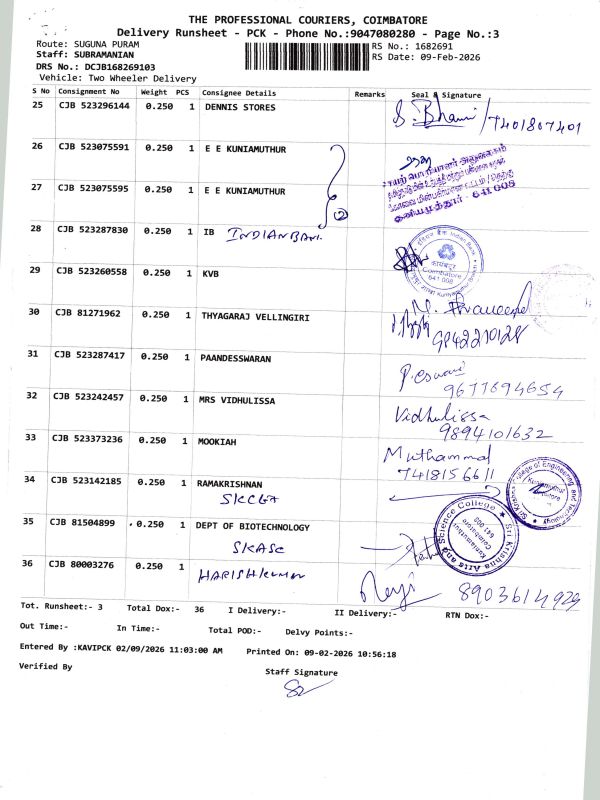 THE PROFESSIONAL COURIERS, COIMBATORE
Delivery Runsheet - PCK - Phone No.:9047080280 - Page No.:3
Route: SUGUNA PURAM
RS No.: 1682691
Staff: SUBRAMANIAN
RS Date: 09-Feb-2026
DRS No.: DCJB168269103
Vehicle: Two Wheeler Delivery
S No Consignment No Weight PCS Consignee Details Remarks Seal & Signature
25 CJB 523296144 0.250 1 DENNIS STORES S. Bhami /7401807401
26 CJB 523075591 0.250 1 E E KUNIAMUTHUR
27 CJB 523075595 0.250 1 E E KUNIAMUTHUR 2
641 008
28 CJB 523287830 0.250 1 IB INDIAN BANK
Indian Bank
Coimbatore
641 008
29 CJB 523260558 0.250 1 KVB
30 CJB 81271962 0.250 1 THYAGARAJ VELLINGIRI 9842210128
31 CJB 523287417 0.250 1 PAANDESSWARAN P. Eswari
9677694654
32 CJB 523242457 0.250 1 MRS VIDHULISSA Vidhulissa
9894101632
33 CJB 523373236 0.250 1 MOOKIAH Muthammal
7418156611
34 CJB 523142185 0.250 1 RAMAKRISHNAN
SKCET
Sri Krishna College of Engineering and Technology
Kuniamuthur
Coimbatore
35 CJB 81504899 0.250 1 DEPT OF BIOTECHNOLOGY
SKASC
Sri Krishna Arts and Science College
Kuniamuthur
Coimbatore
641 008
36 CJB 80003276 0.250 1 HARISHKUMAR 8903614929
Tot. Runsheet:- 3 Total Dox:- 36 I Delivery:- II Delivery:- RTN Dox:-
Out Time:- In Time:- Total POD:- Delvy Points:-
Entered By :KAVIPCK 02/09/2026 11:03:00 AM Printed On: 09-02-2026 10:56:18
Verified By
Staff Signature